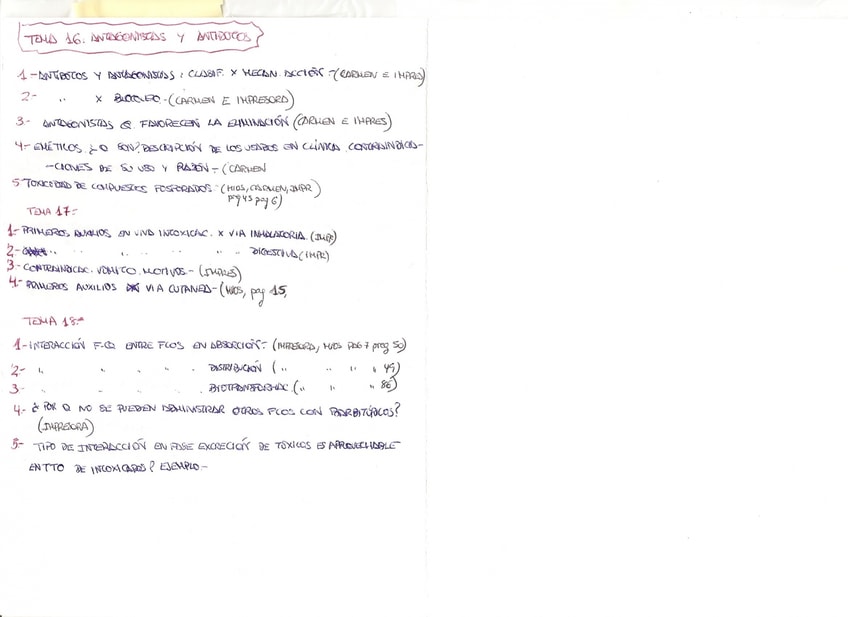 TEMA 16. ANTAGONISTAS Y ANTIDOTOS
1-ANTIDOTOS Y ANTAGONISTAS: CLASIF. X MECAN. ACCIÓN-(CARMEN E IMPRES)
2- " X BLOQUEO-(CARMEN E IMPRESORA)
3- ANTAGONISTAS Q. FAVORECEN LA ELIMINACIÓN (CARMEN E IMPRES)
4- EMÉTICOS ¿Q SON? DESCRIPCIÓN DE LOS USADOS EN CLÍNICA. CONTRAINDICA-
-CIONES DE SU USO Y RAZÓN-(CARMEN
5 TOXICIDAD DE COMPUESTOS FOSFORADOS-(MIOS, CARMEN, IMPR)
pg 45 pag 6)
TEMA 17-
1-PRIMEROS AUXILIOS EN VIVO INTOXICAC. X VIA INHALATORIA. (IMPR)
2- " " " " " " DIGESTIVA (IMPR)
3-CONTRAINDICAC. VÓMITO. MOTIVOS-(IMPRES)
4-PRIMEROS AUXILIOS VIA CUTANEA-(MIOS, pag 15,
TEMA 18-
1-INTERACCIÓN F-Q ENTRE FCOS EN ABSORCIÓN-(IMPRESORA, MIOS PAG 7 preg 50)
2- " " " " DISTRIBUCIÓN ( " " " " 49)
3- " " " " BIOTRANSFORMAC. ( " " " 86)
4- ¿POR Q NO SE PUEDEN ADMINISTRAR OTROS FCOS CON BARBITÚRICOS?
(IMPRESORA)
5- TIPO DE INTERACCIÓN EN FASE EXCRECIÓN DE TÓXICOS ES APROVECHABLE
EN TTO DE INTOXICADOS? EJEMPLO-